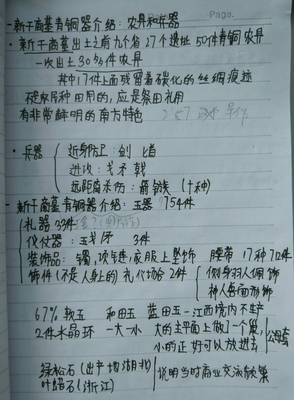 Page.
- 新干商墓青铜器介绍:农具和兵器
· 新干商墓出土之前九个省27个遗址50件青铜农具
一次出土30多件农具
其中17件上面残留着碳化的丝绸痕迹
不是用种田用的,应是祭田礼用
有非常鲜明的南方特色
· 兵器
近身防卫:剑 匕首
进攻:戈矛戟
远距离杀伤:箭镞(十种)
- 新干商墓青铜器介绍:玉器 754件
礼器 33件
仪仗器:玉戈矛 3件
装饰品:镯、项链、衣服上坠饰 腰带 17种 712件
饰件(不是人身上的)礼仪场合 2件
侧身羽人佩饰
神人兽面形饰
67% 软玉 和田玉 蓝田玉-江西境内不产
2件水晶环 一大一小 大的平面上做了一个槽,
小的正好可以放进去
绿松石(出产地湖北)
叶蜡石(浙江)
说明当时商业交流频繁